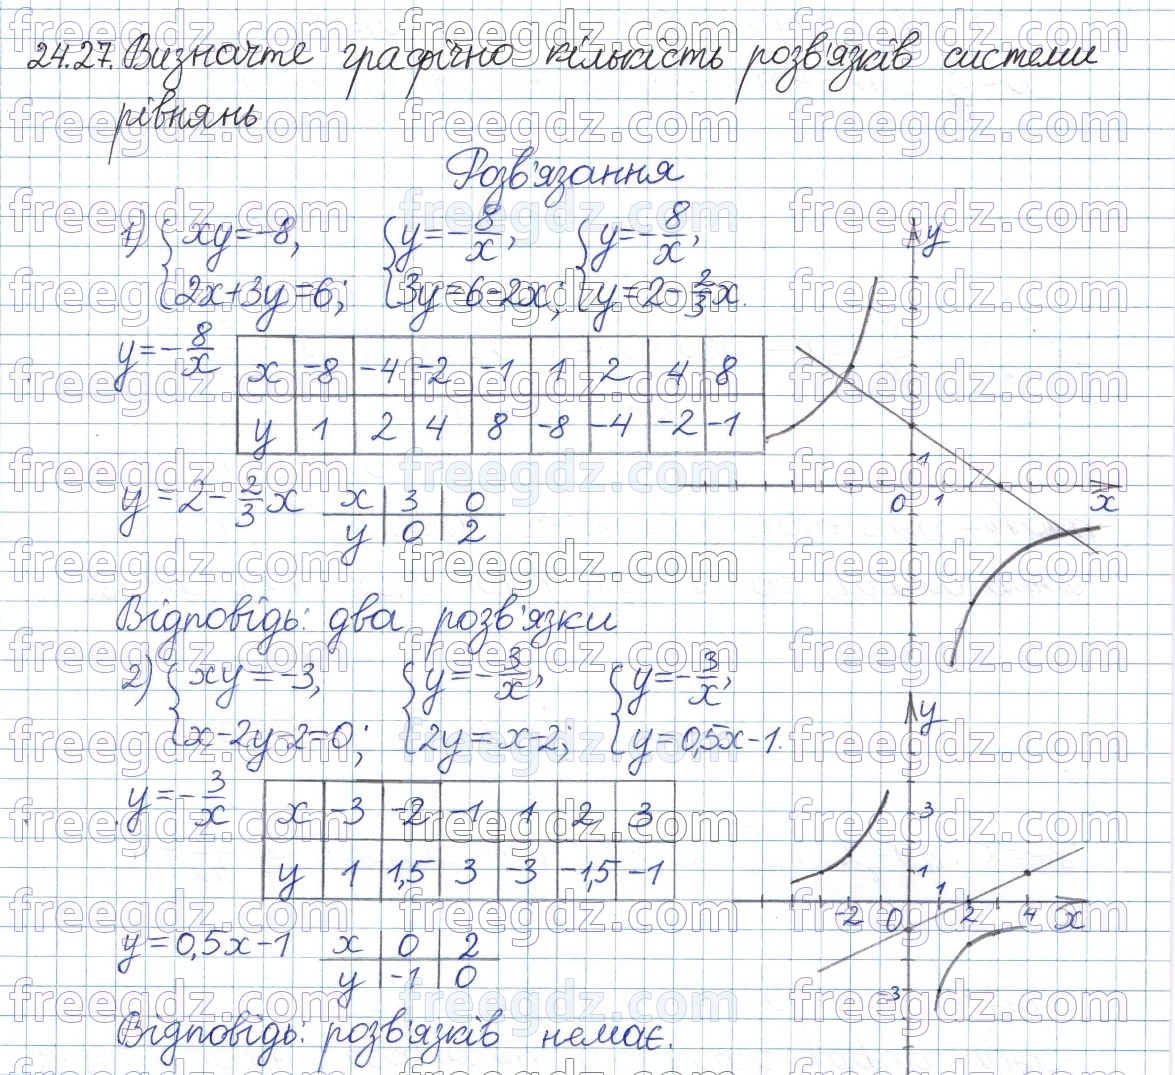 24.27. Визначте графічно кількість розв'язків системи
рівнянь
Розв'язання
1) {xy=-8, {y=-8/x, {y=-8/x,
{2x+3y=6; {3y=6-2x; {y=2-2/3x.
y=-8/x
x -8 -4 -2 -1 1 2 4 8
y 1 2 4 8 -8 -4 -2 -1
y=2-2/3x
x 3 0
y 0 2
y
1
0 1 x
Відповідь: два розв'язки
2) {xy=-3, {y=-3/x, {y=-3/x,
{x-2y-2=0; {2y=x-2; {y=0,5x-1.
y=-3/x
x -3 -2 -1 1 2 3
y 1 1,5 3 -3 -1,5 -1
y=0,5x-1
x 0 2
y -1 0
y
3
1
1
-2 0 2 4 x
-3
Відповідь: розв'язків немає.
freegdz.com